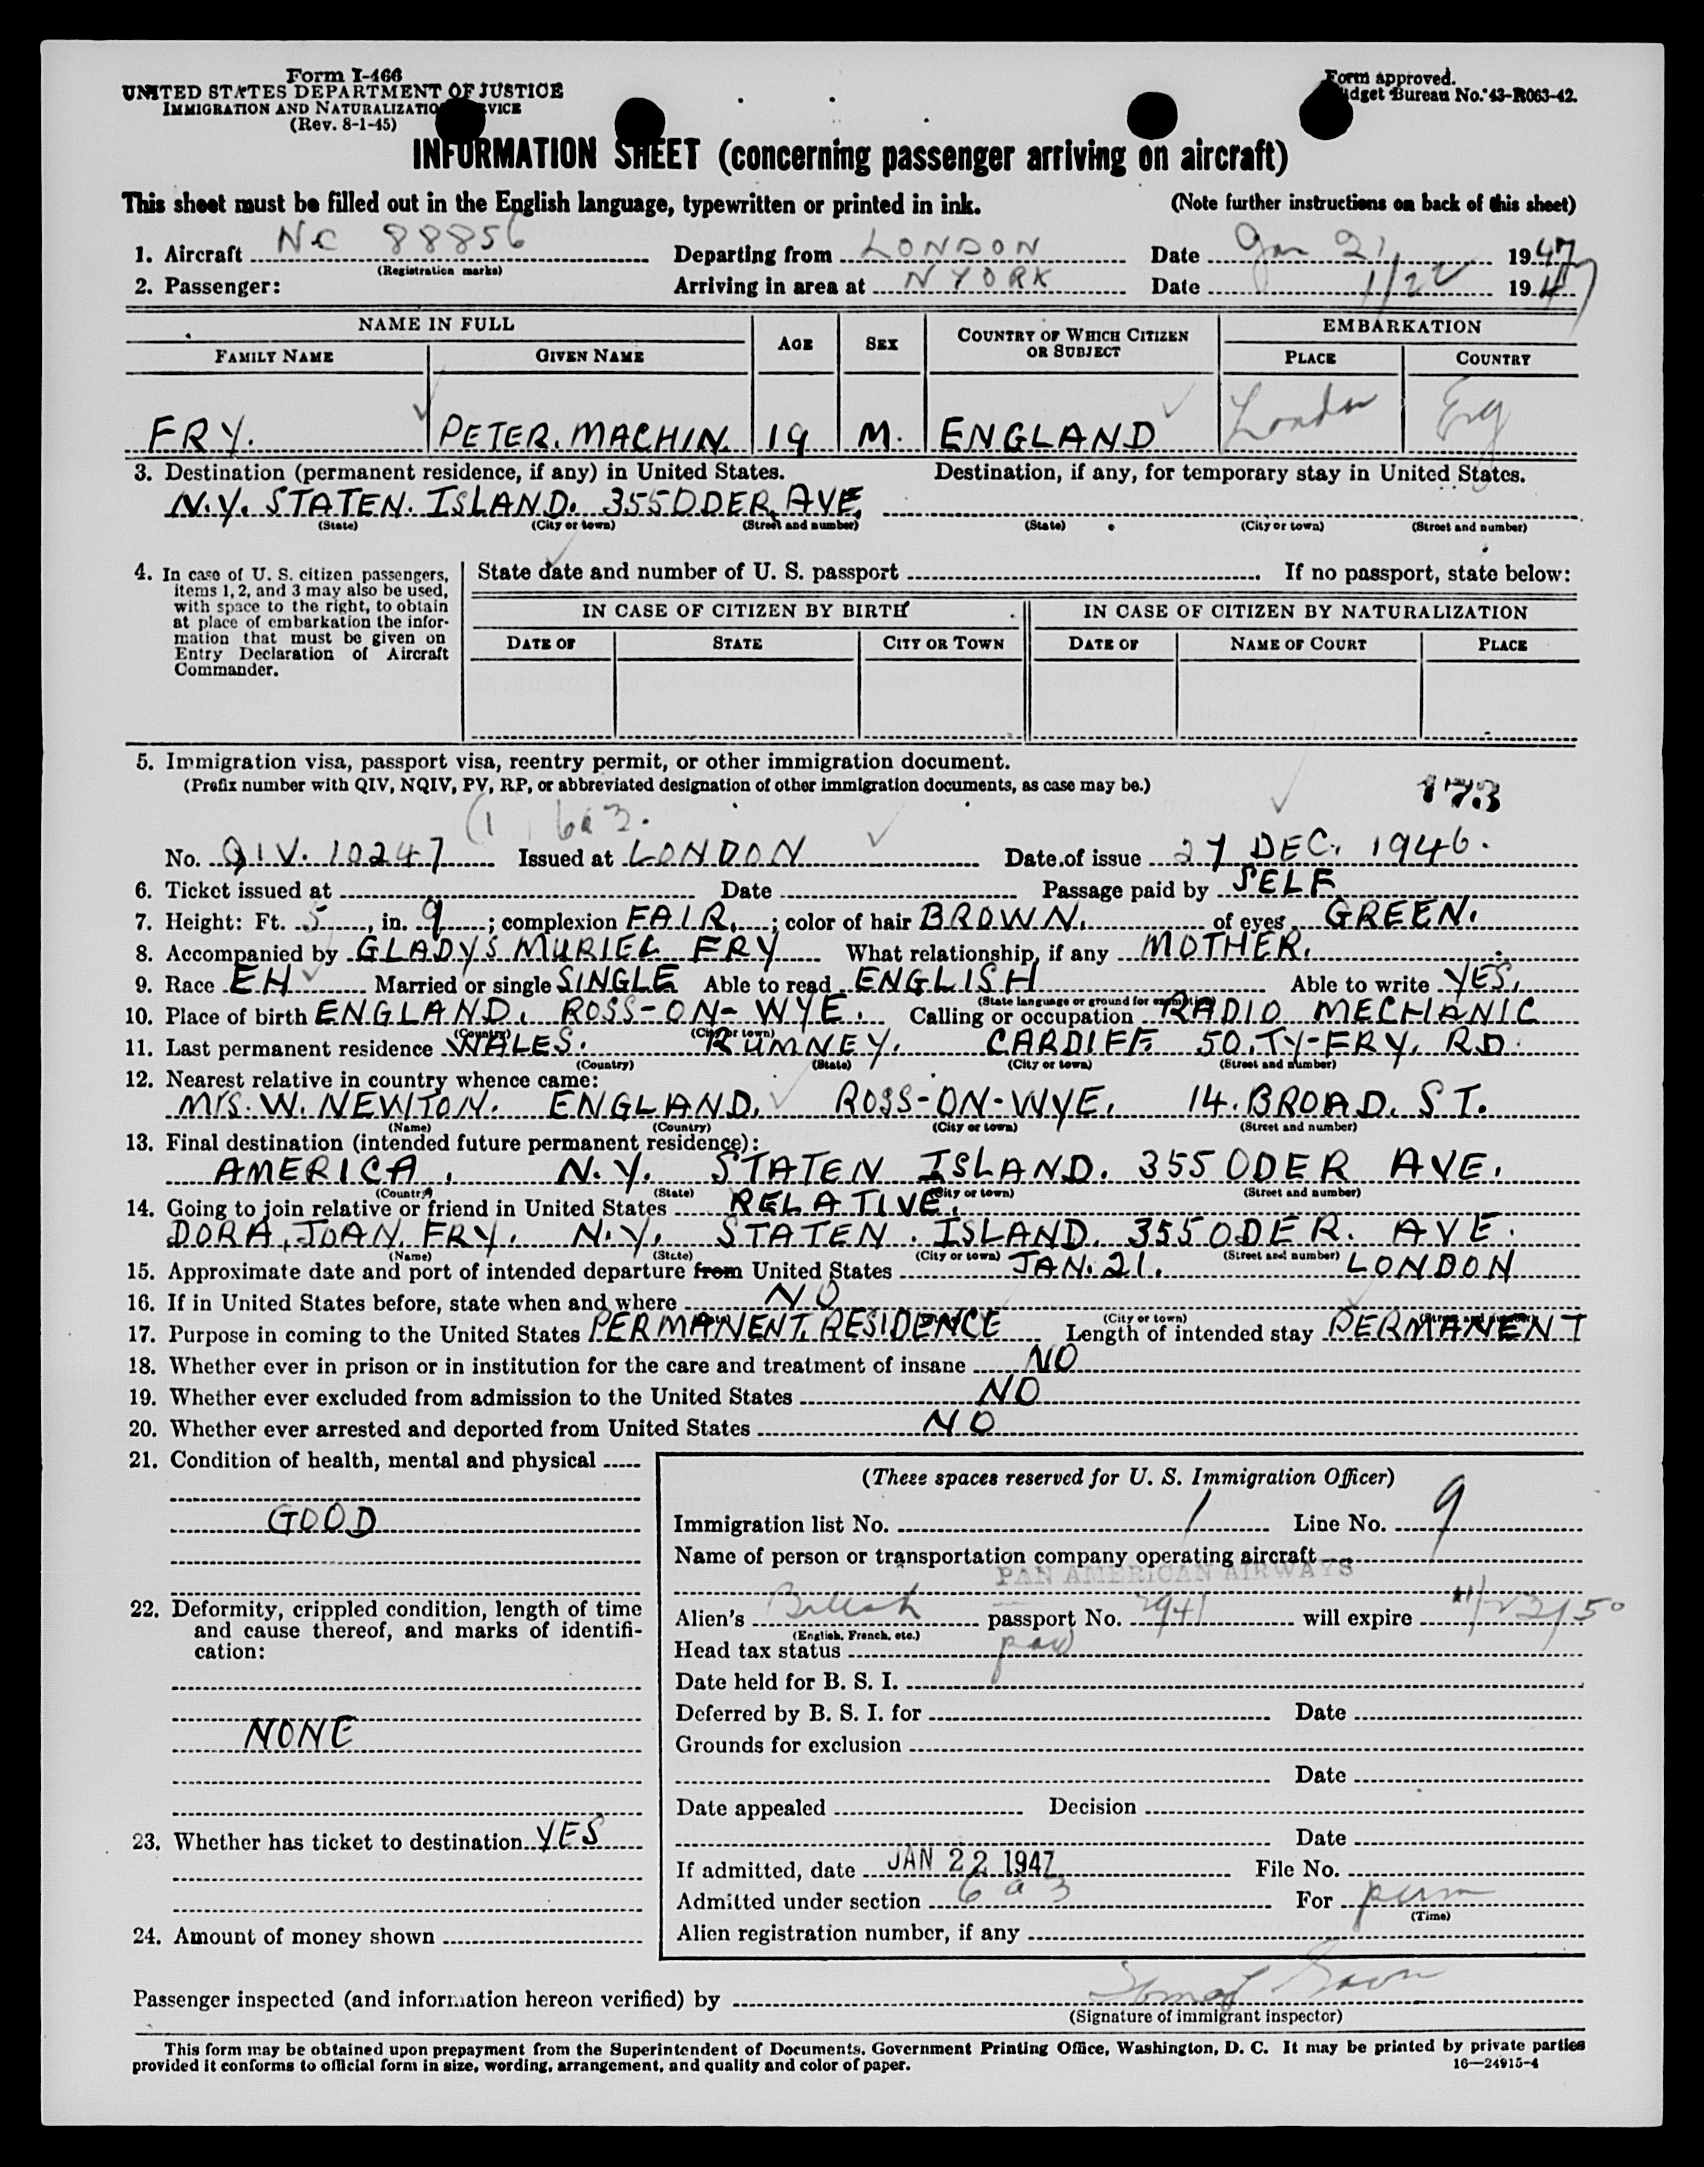 Form I-466
UNITED STATES DEPARTMENT OF JUSTICE
IMMIGRATION AND NATURALIZATION SERVICE
(Rev. 8-1-45)
Form approved.
Budget Bureau No. 43-R063-42.
INFORMATION SHEET (concerning passenger arriving on aircraft)
This sheet must be filled out in the English language, typewritten or printed in ink. (Note further instructions on back of this sheet)
1. Aircraft NC 88856 Departing from LONDON Date Jan 21 1947
(Registration marks)
2. Passenger: Arriving in area at N YORK Date 1/22 1947
NAME IN FULL AGE SEX COUNTRY OF WHICH CITIZEN OR SUBJECT EMBARKATION
FAMILY NAME GIVEN NAME PLACE COUNTRY
FRY. PETER. MACHIN. 19 M. ENGLAND London Eng
3. Destination (permanent residence, if any) in United States. Destination, if any, for temporary stay in United States.
N.Y. STATEN. ISLAND. 355 ODER AVE.
(State) (City or town) (Street and number) (State) (City or town) (Street and number)
4. In case of U. S. citizen passengers, items 1, 2, and 3 may also be used, with space to the right, to obtain at place of embarkation the information that must be given on Entry Declaration of Aircraft Commander.
State date and number of U. S. passport If no passport, state below:
IN CASE OF CITIZEN BY BIRTH IN CASE OF CITIZEN BY NATURALIZATION
DATE OF STATE CITY OR TOWN DATE OF NAME OF COURT PLACE
5. Immigration visa, passport visa, reentry permit, or other immigration document.
(Prefix number with QIV, NQIV, PV, RP, or abbreviated designation of other immigration documents, as case may be.) 173
6a3.
No. QIV. 10247 Issued at LONDON Date of issue 27 DEC. 1946.
6. Ticket issued at Date Passage paid by SELF
7. Height: Ft. 5, in. 9; complexion FAIR.; color of hair BROWN. of eyes GREEN.
8. Accompanied by GLADYS MURIEL FRY What relationship, if any MOTHER.
9. Race EH Married or single SINGLE Able to read ENGLISH Able to write YES.
(State language or ground for exemption)
10. Place of birth ENGLAND. ROSS-ON-WYE. Calling or occupation RADIO MECHANIC
(Country) (City or town)
11. Last permanent residence WALES. RUMNEY. CARDIFF. 50. TY-FRY. RD.
(Country) (State) (City or town) (Street and number)
12. Nearest relative in country whence came:
MRS. W. NEWTON. ENGLAND. ROSS-ON-WYE. 14. BROAD. ST.
(Name) (Country) (City or town) (Street and number)
13. Final destination (intended future permanent residence):
AMERICA. N.Y. STATEN ISLAND. 355 ODER AVE.
(Country) (State) (City or town) (Street and number)
14. Going to join relative or friend in United States RELATIVE.
DORA. JOAN. FRY. N.Y. STATEN. ISLAND. 355 ODER. AVE.
(Name) (State) (City or town) (Street and number)
15. Approximate date and port of intended departure from United States JAN. 21. LONDON
16. If in United States before, state when and where NO
(City or town) (Street and number)
17. Purpose in coming to the United States PERMANENT. RESIDENCE Length of intended stay PERMANENT
18. Whether ever in prison or in institution for the care and treatment of insane NO
19. Whether ever excluded from admission to the United States NO
20. Whether ever arrested and deported from United States NO
21. Condition of health, mental and physical
GOOD
22. Deformity, crippled condition, length of time and cause thereof, and marks of identification:
NONE
23. Whether has ticket to destination YES
24. Amount of money shown
(These spaces reserved for U. S. Immigration Officer)
Immigration list No. 1 Line No. 9
Name of person or transportation company operating aircraft
PAN AMERICAN AIRWAYS
Alien's British passport No. 2941 will expire
(English, French, etc.)
Head tax status paid
Date held for B. S. I.
Deferred by B. S. I. for Date
Grounds for exclusion
Date
Date appealed Decision
Date
If admitted, date JAN 22 1947 File No.
Admitted under section 6 a 3 For perm
(Time)
Alien registration number, if any
Passenger inspected (and information hereon verified) by
(Signature of immigrant inspector)
This form may be obtained upon prepayment from the Superintendent of Documents, Government Printing Office, Washington, D. C. It may be printed by private parties
provided it conforms to official form in size, wording, arrangement, and quality and color of paper. 16—24915-4